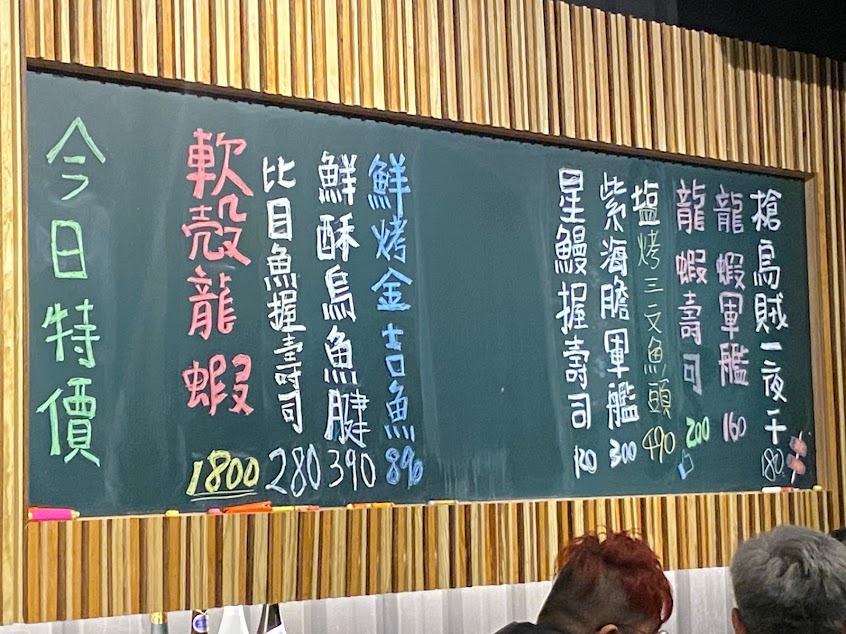 今日特價
軟殼龍蝦 1800
比目魚握壽司 280
鮮酥烏魚腱 390
鮮烤金吉魚 890
星鰻握壽司 120
紫海膽軍艦 300
塩烤三文魚頭 490
龍蝦壽司 200
龍蝦軍艦 160
槍烏賊一夜干 80